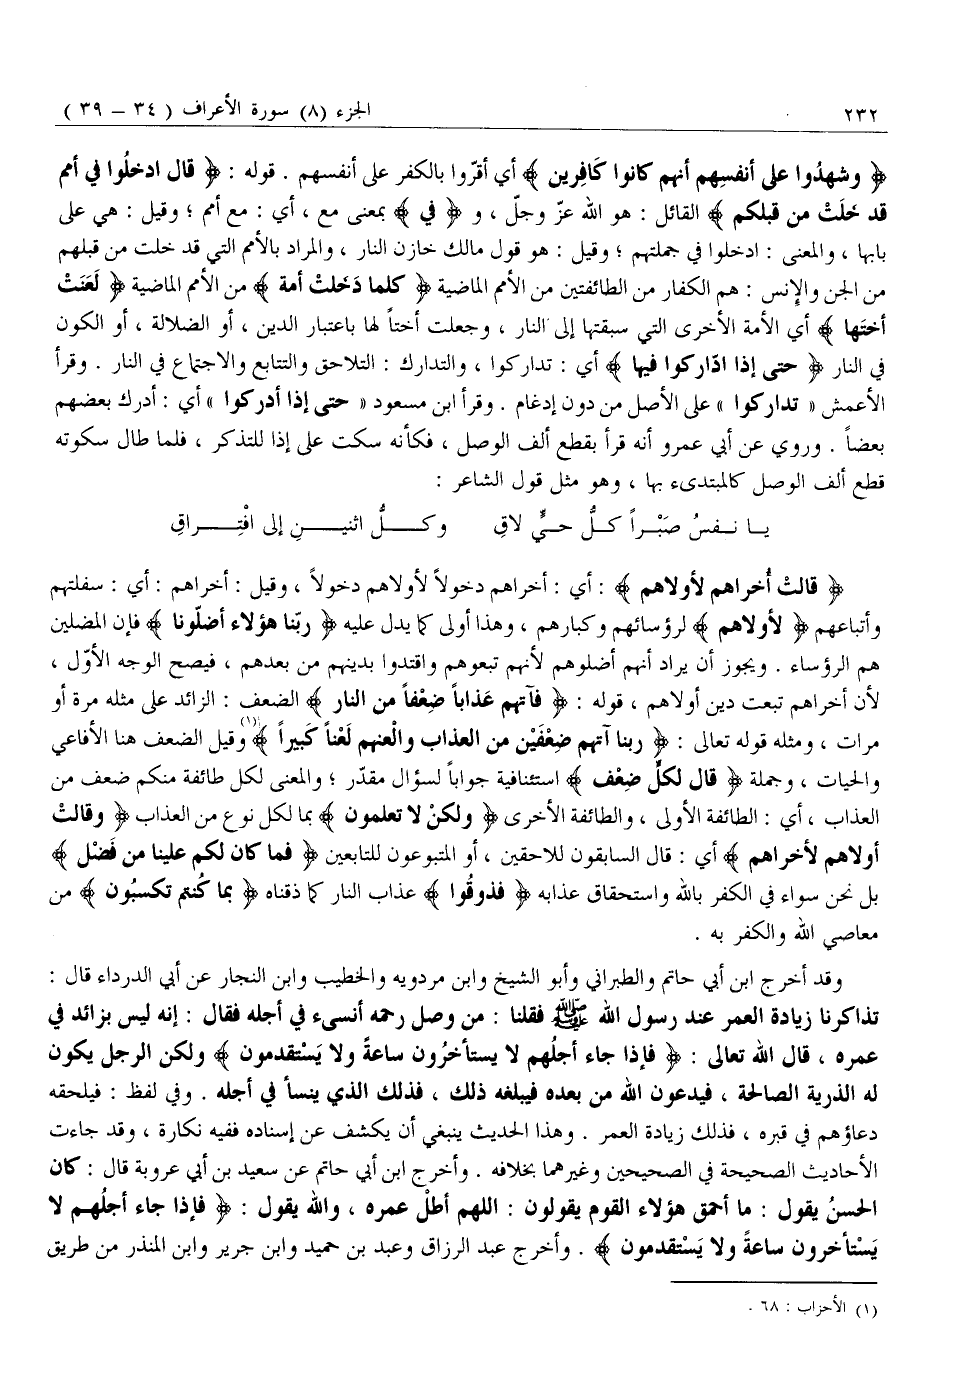 ٢٣٢ الجزء (٨) سورة الأعراف ( ٣٤ – ٣٩ )
﴿ وشهدُوا على أنفسِهم أنهم كانوا كَافِرين ﴾ أي أقرّوا بالكفر على أنفسهم . قوله : ﴿ قال ادخلُوا في أمم
قد خَلَتْ من قبلكم ﴾ القائل : هو الله عزّ وجلّ ، و ﴿ في ﴾ بمعنى مع ، أي : مع أمم ؛ وقيل : هي على
بابها ، والمعنى : ادخلوا في جملتهم ؛ وقيل : هو قول مالك خازن النار ، والمراد بالأمم التي قد خلت من قبلهم
من الجن والإنس : هم الكفار من الطائفتين من الأمم الماضية ﴿ كلما دَخلتْ أمة ﴾ من الأمم الماضية ﴿ لَعَنَتْ
أختَها ﴾ أي الأمة الأخرى التي سبقتها إلى النار ، وجعلت أختاً لها باعتبار الدين ، أو الضلالة ، أو الكون
في النار ﴿ حتى إذا ادّاركوا فيها ﴾ أي : تداركوا ، والتدارك : التلاحق والتتابع والاجتماع في النار . وقرأ
الأعمش « تداركوا » على الأصل من دون إدغام . وقرأ ابن مسعود « حتى إذا أدركوا » أي : أدرك بعضهم
بعضاً . وروي عن أبي عمرو أنه قرأ بقطع ألف الوصل ، فكأنه سكت على إذا للتذكر ، فلما طال سكوته
قطع ألف الوصل كالمبتدىء بها ، وهو مثل قول الشاعر :
يا نفسُ صَبْراً كلُّ حيٍّ لاقِ وكلُّ اثنينِ إلى افْتِراقِ
﴿ قالتْ أُخراهم لأولاهم ﴾ : أي : أخراهم دخولاً لأولاهم دخولاً ، وقيل : أخراهم : أي : سفلتهم
وأتباعهم ﴿ لأولاهم ﴾ لرؤسائهم وكبارهم ، وهذا أولى كما يدل عليه ﴿ ربّنا هؤلاء أضلّونا ﴾ فإن المضلين
هم الرؤساء . ويجوز أن يراد أنهم أضلوهم لأنهم تبعوهم واقتدوا بدينهم من بعدهم ، فيصح الوجه الأوّل ،
لأن أخراهم تبعت دين أولاهم ، قوله : ﴿ فآتهم عَذاباً ضِعْفاً من النار ﴾ الضعف : الزائد على مثله مرة أو
مرات ، ومثله قوله تعالى : ﴿ ربنا آتهم ضِعْفَيْن من العذاب والْعنهم لَعْناً كَبيراً ﴾(١) وقيل الضعف هنا الأفاعي
والحيات ، وجملة ﴿ قال لكلٍّ ضِعْف ﴾ استئنافية جواباً لسؤال مقدّر ؛ والمعنى لكل طائفة منكم ضعف من
العذاب ، أي : الطائفة الأولى ، والطائفة الأخرى ﴿ ولكنْ لا تعلمون ﴾ بما لكل نوع من العذاب ﴿ وقالتْ
أولاهم لأخراهم ﴾ أي : قال السابقون للاحقين ، أو المتبوعون للتابعين ﴿ فما كان لكم علينا من فَضْل ﴾
بل نحن سواء في الكفر بالله واستحقاق عذابه ﴿ فذوقُوا ﴾ عذاب النار كما ذقناه ﴿ بما كُنتم تكسبُون ﴾ من
معاصي الله والكفر به .
وقد أخرج ابن أبي حاتم والطبراني وأبو الشيخ وابن مردويه والخطيب وابن النجار عن أبي الدرداء قال :
تذاكرنا زيادة العمر عند رسول الله ﷺ فقلنا : من وصل رحمه أنسىء في أجله فقال : إنه ليس بزائد في
عمره ، قال الله تعالى : ﴿ فإذا جاء أجلُهم لا يستأخرُون ساعةً ولا يَسْتقدمون ﴾ ولكن الرجل يكون
له الذرية الصالحة ، فيدعون الله من بعده فيبلغه ذلك ، فذلك الذي ينسأ في أجله . وفي لفظ : فيلحقه
دعاؤهم في قبره ، فذلك زيادة العمر . وهذا الحديث ينبغي أن يكشف عن إسناده ففيه نكارة ، وقد جاءت
الأحاديث الصحيحة في الصحيحين وغيرهما بخلافه . وأخرج ابن أبي حاتم عن سعيد بن أبي عروبة قال : كان
الحسنُ يقول : ما أحمق هؤلاء القوم يقولون : اللهم أطلْ عمره ، والله يقول : ﴿ فإذا جاء أجلُهم لا
يَسْتأخرون ساعةً ولا يَسْتقدمون ﴾ . وأخرج عبد الرزاق وعبد بن حميد وابن جرير وابن المنذر من طريق
(١) الأحزاب : ٦٨ .